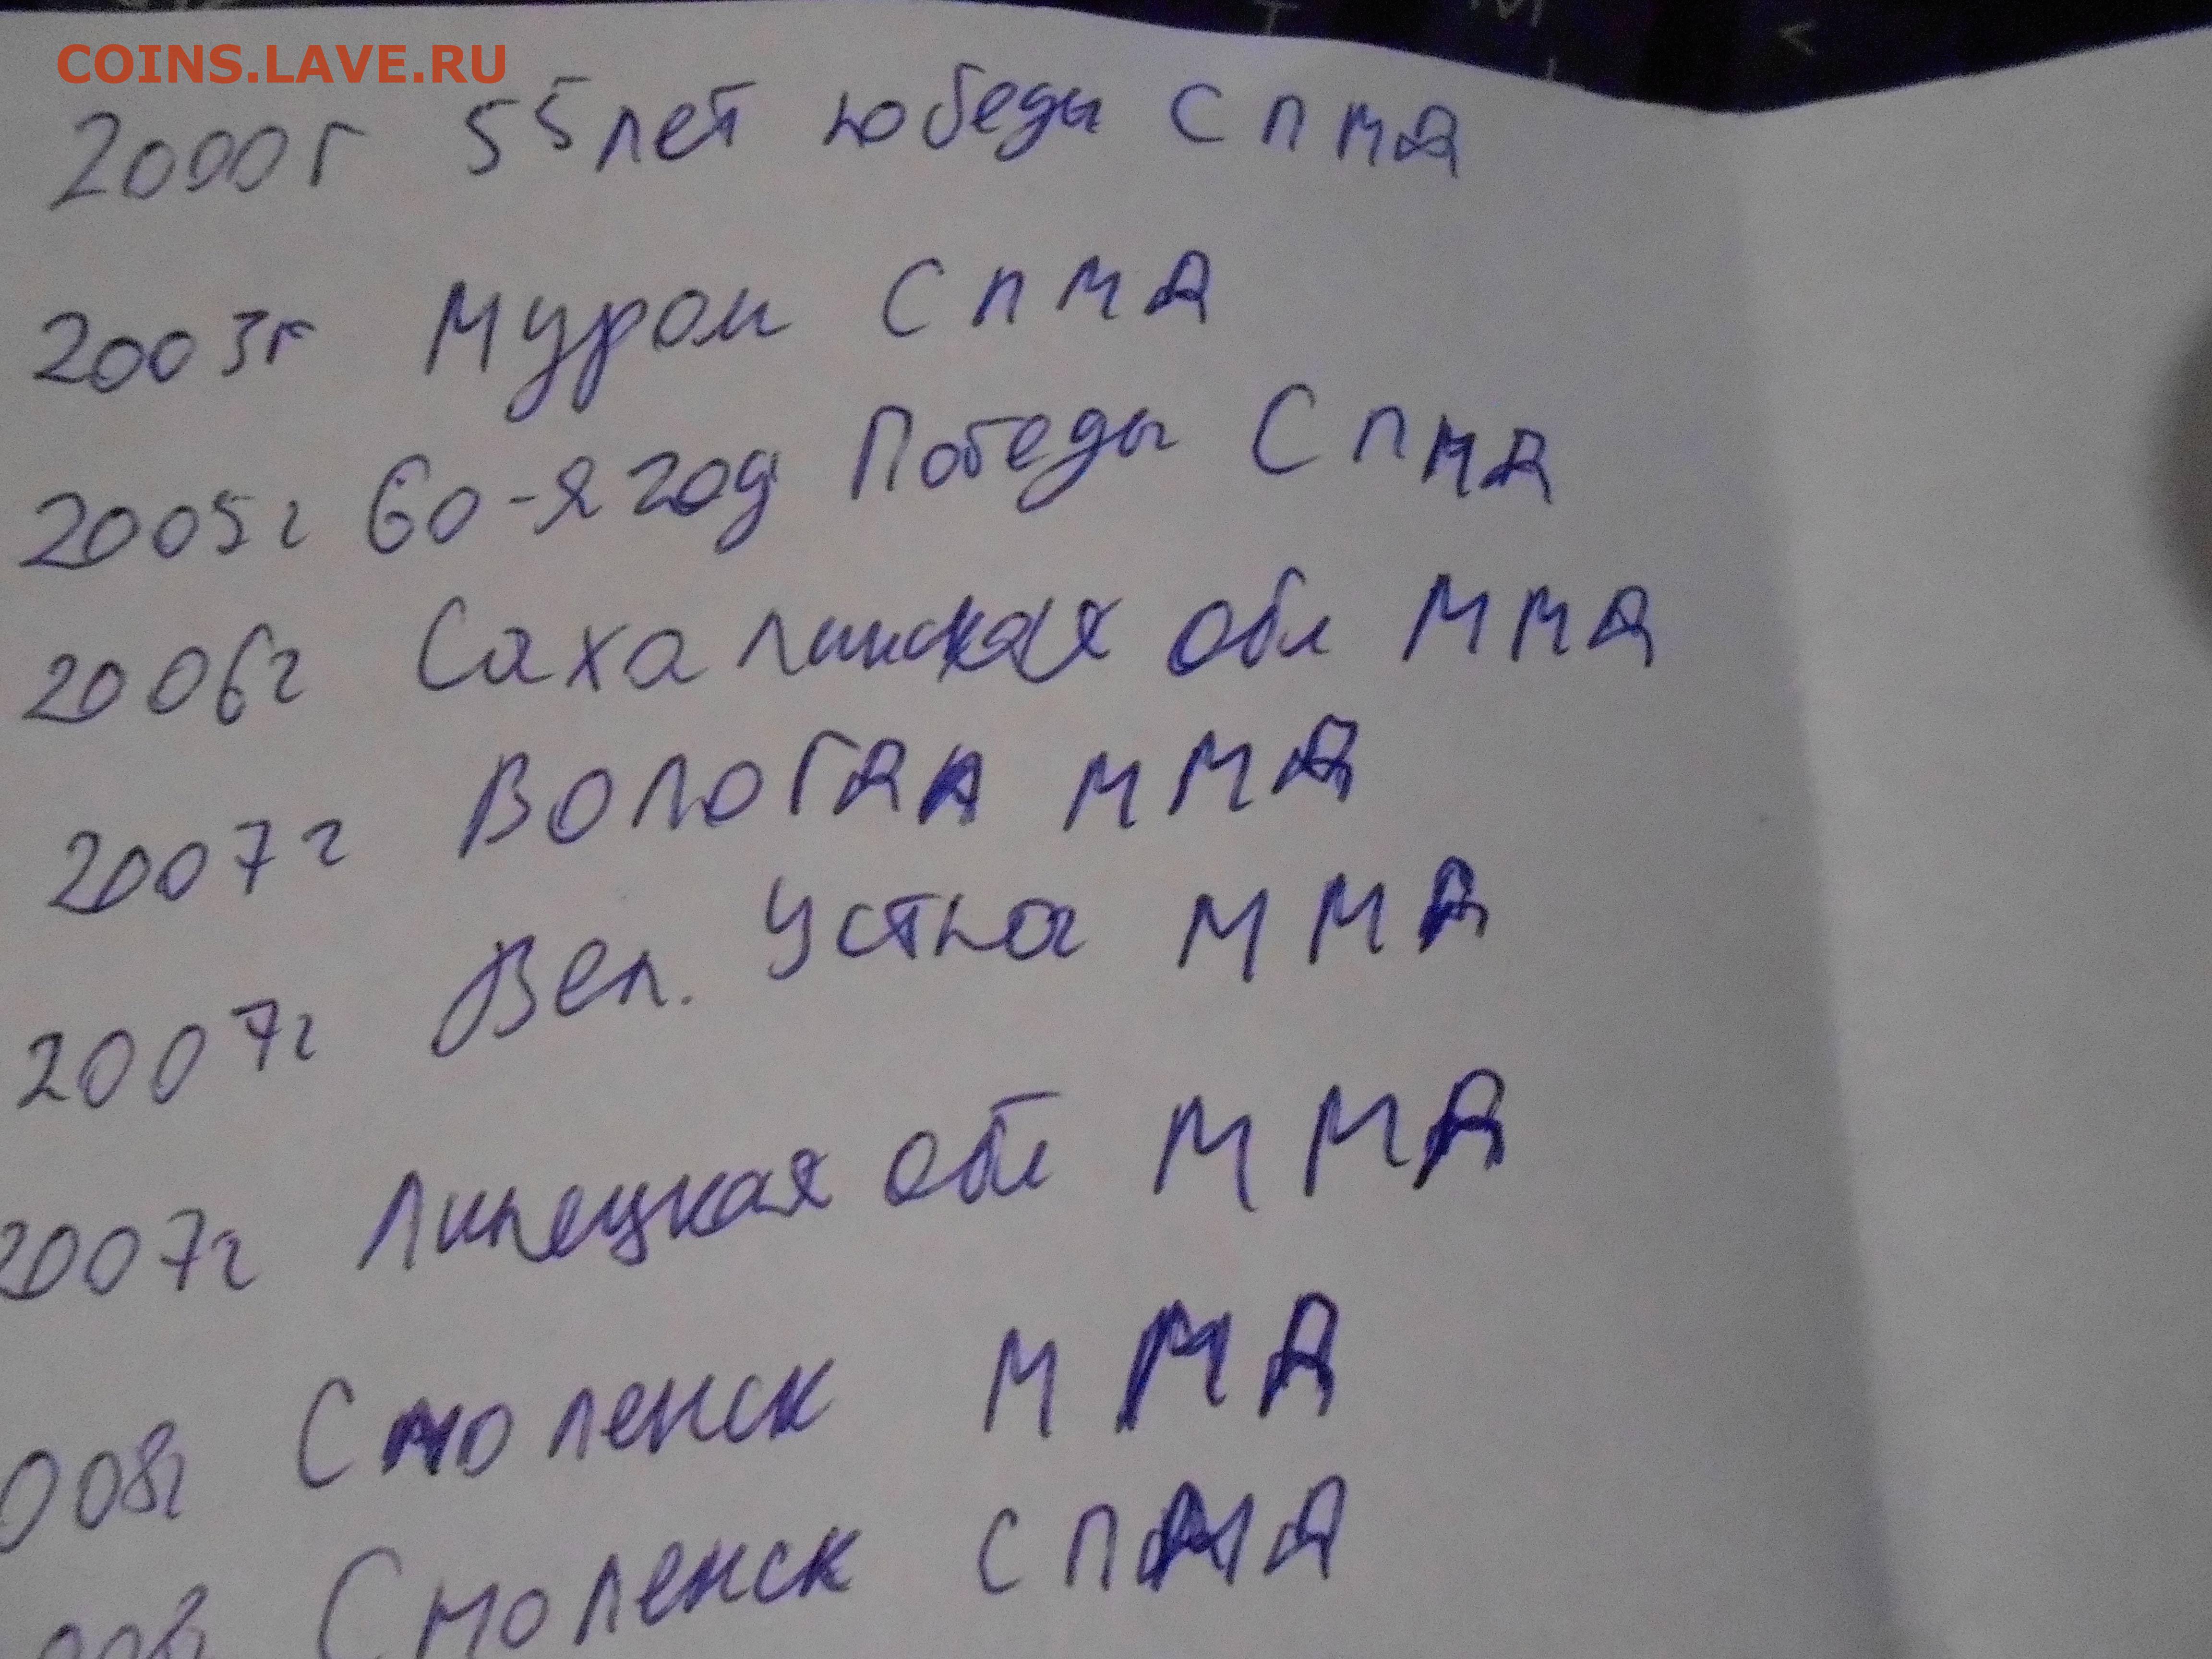 COINS.LAVE.RU
2000г 55 лет победы СПМД
2003г Муром СПМД
2005г 60-я год Победы СПМД
2006г Сахалинская обл ММД
2007г ВОЛОГДА ММД
2007г Вел. Устюг ММД
2007г Липецкая обл ММД
008г Смоленск ММД
008г Смоленск СПМД